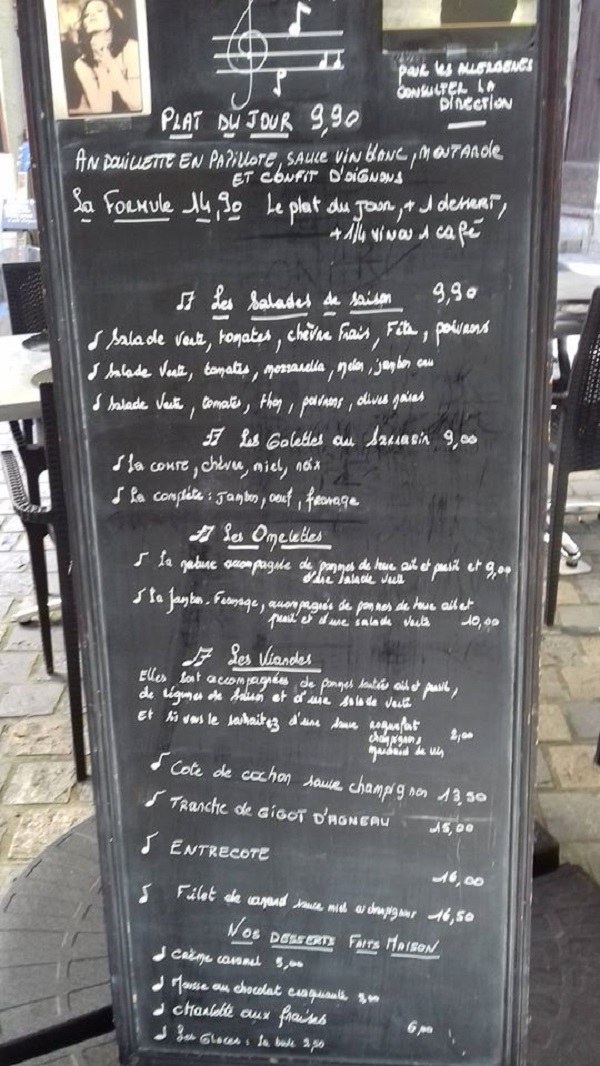 POUR LES ALLERGENES
CONSULTER LA
DIRECTION
PLAT DU JOUR 9,90
ANDOUILLETTE EN PAPILLOTE, SAUCE VIN blanc, MOUTARDE
ET CONFIT D'OIGNONS
La FORMULE 14,90 Le plat du jour, + 1 dessert,
+ 1/4 vin ou 1 café
Les Salades de saison 9,90
Salade verte, tomates, chèvre frais, Féta, poivrons
Salade verte, tomates, mozzarella, melon, jambon cru
Salade verte, tomates, thon, poivrons, olives noires
Les Galettes au Sarrasin 9,00
La comté, chèvre, miel, noix
La complète : jambon, oeuf, fromage
Les Omelettes
La nature accompagnée de pommes de terre ail et persil et 9,00
d'une salade verte
La Jambon-Fromage, accompagnée de pommes de terre ail et
persil et d'une salade verte 10,00
Les Viandes
Elles sont accompagnées de pommes sautées ail et persil,
de légumes de saison et d'une salade verte
Et si vous le souhaitez d'une sauce roquefort
champignons 2,00
marchand de vin
Cote de cochon sauce champignon 13,50
TRANCHE de GIGOT D'AGNEAU 15,00
ENTRECOTE
16,00
Filet de canard sauce miel champignons 16,50
NOS DESSERTS FAITS MAISON
Crème caramel 5,00
Mousse au chocolat craquante
Charlotte aux fraises 6,00
Les Glaces : la boule 2,50